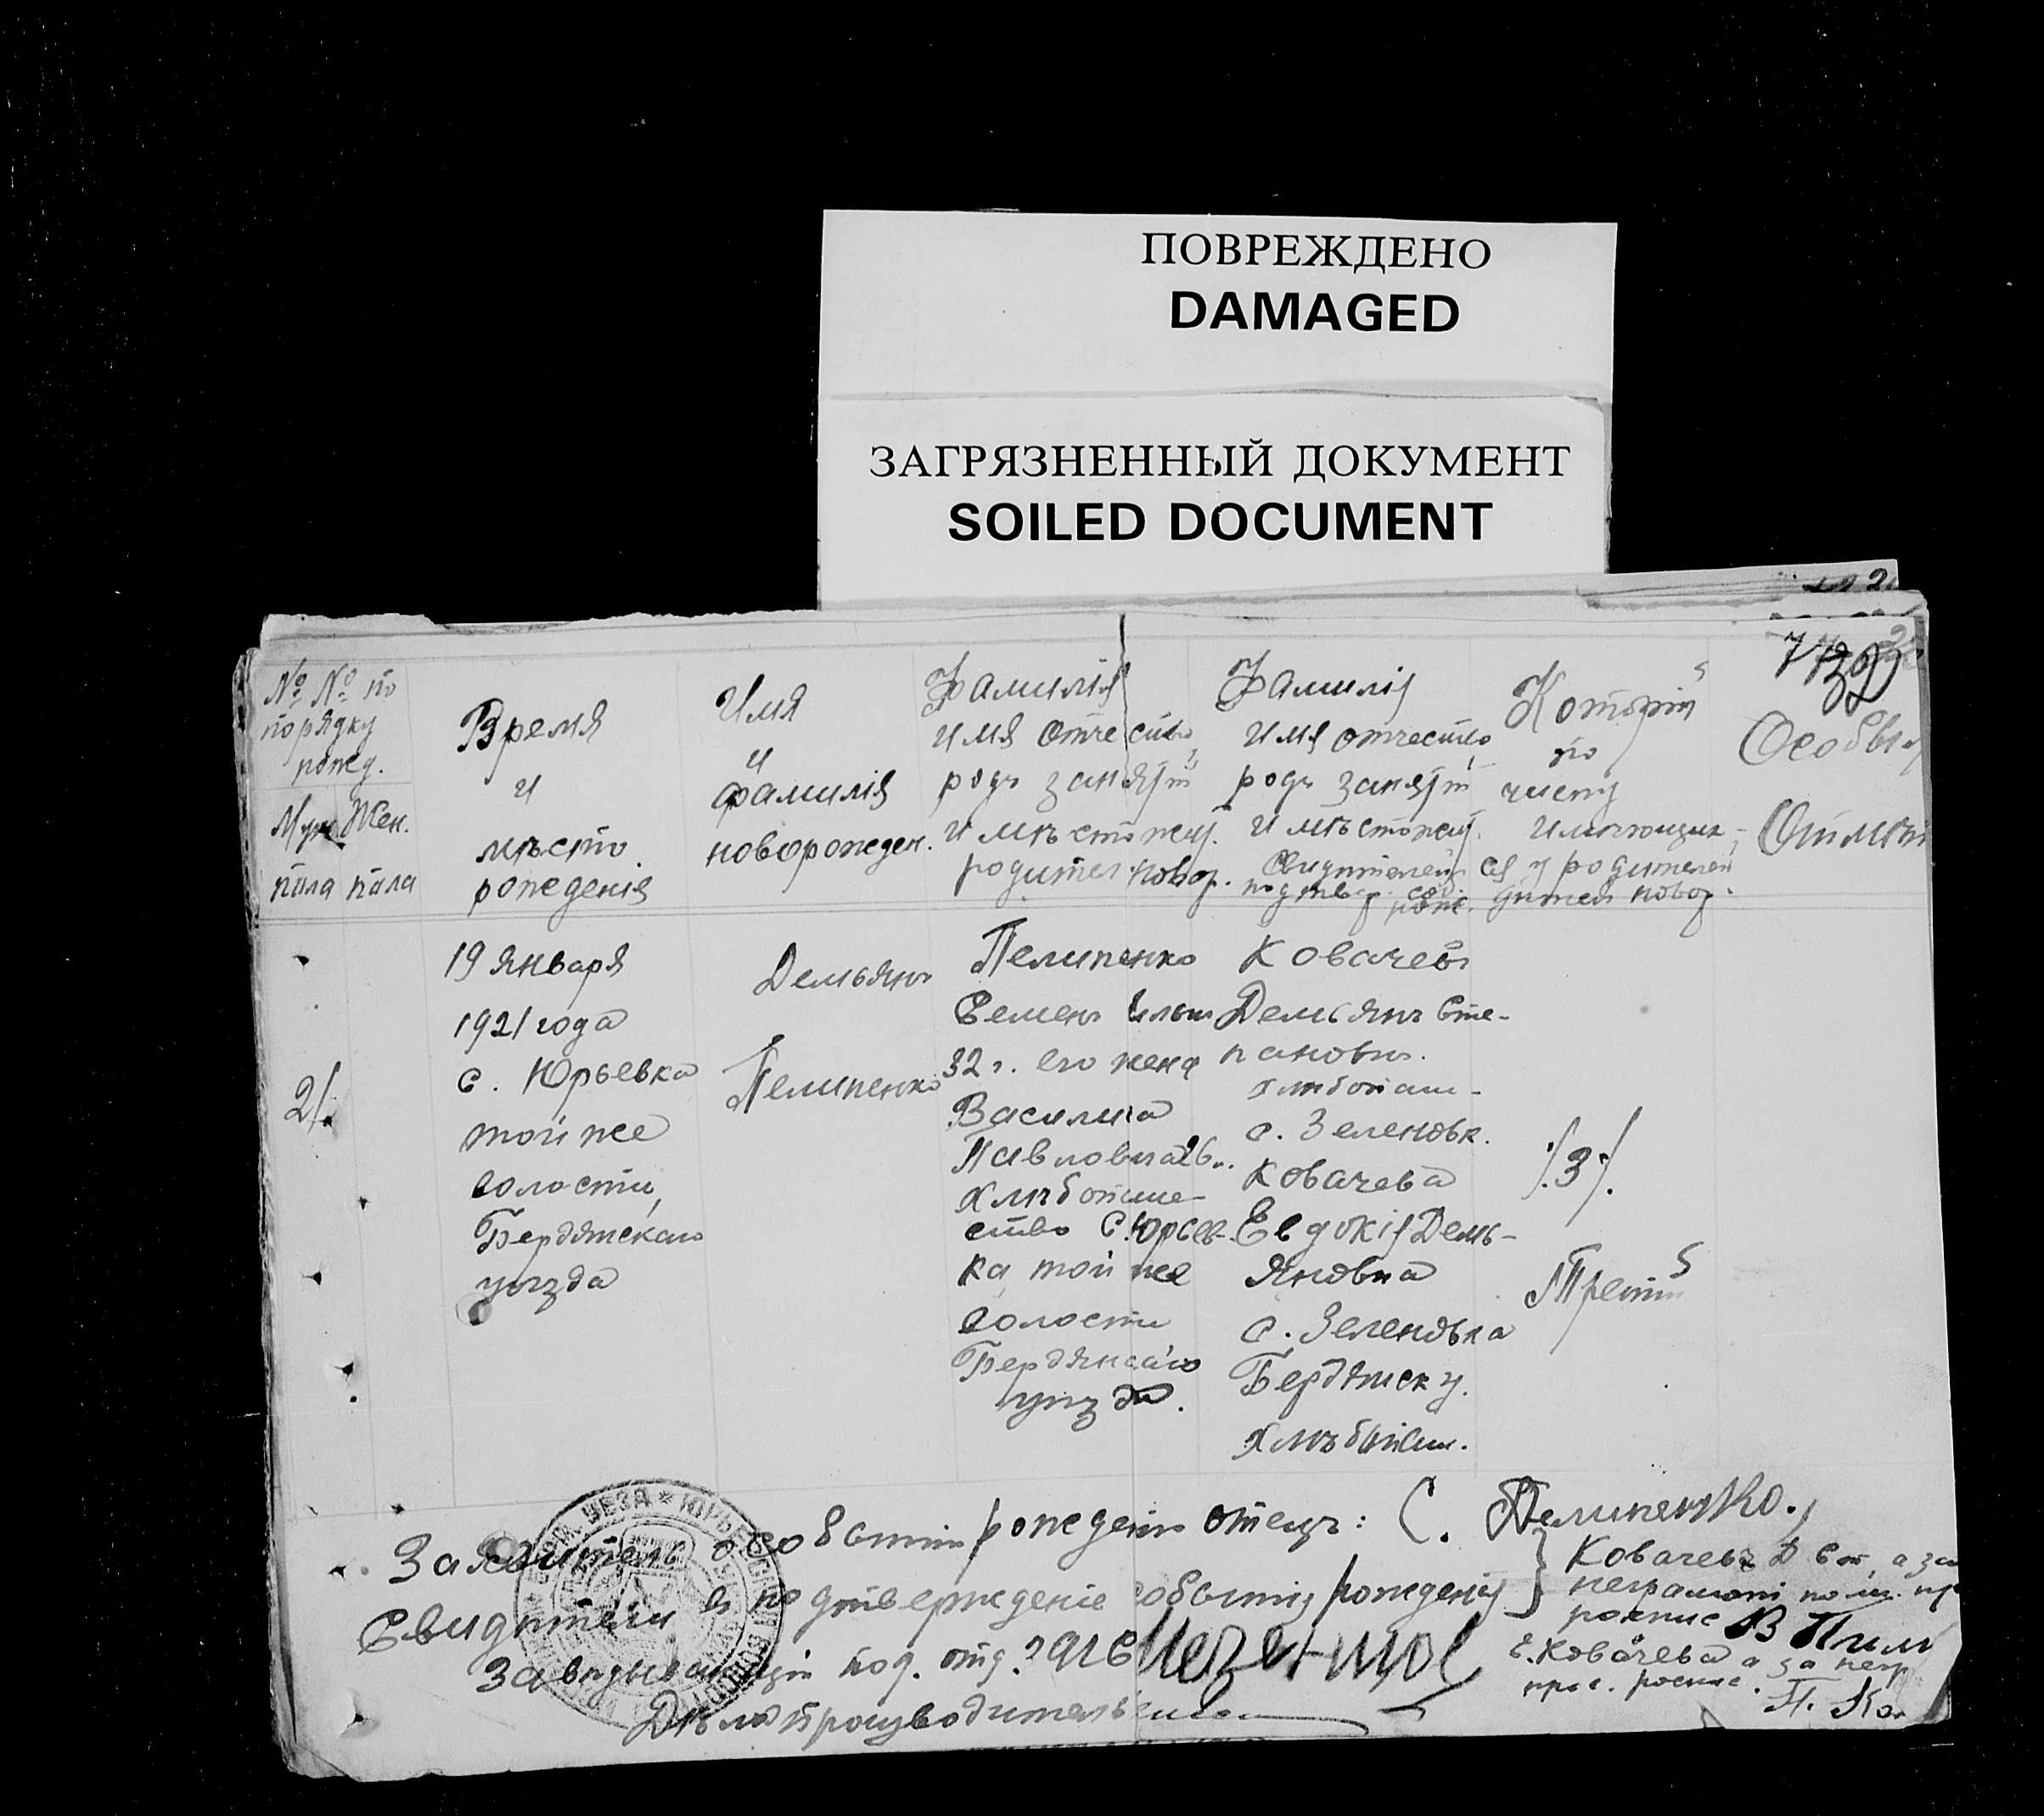 ПОВРЕЖДЕНО
DAMAGED
ЗАГРЯЗНЕННЫЙ ДОКУМЕНТ
SOILED DOCUMENT
№ № по
порядку
рожд.
Муж. Жен.
пола пола
Время
и
мѣсто
рожденія
Имя
и
фамилія
новорожден.
Фамилія
имя отчество
родъ занятій
и мѣстожит.
родител. новор.
Фамилія
имя отчество
родъ занятій
и мѣстожит.
свидѣтелей
подтвер. соб.
рожд.
Которій
по
числу
имѣющих
ся у родителей
дитей новор.
Особыя
Отмѣт
21.
19 января
1921 года
с. Юрьевка
той же
волости,
Бердянскаго
уѣзда
Демьянъ
Пелипенко
Пелипенко
Семенъ Ильич
32 г. его жена
Василиса
Павловна 26 л.
Хлѣбопаше-
ство с. Юрьев-
ка, той же
волости
Бердянскаго
уѣзда.
Ковачевъ
Демьянъ Сте-
пановичъ.
хлѣбопаш.
с. Зеленовк.
Ковачева
Евдокія Демь-
яновна
с. Зеленовка
Бердянск у.
Хлѣбопаш.
/.3./
Третій
Заявитель о событіи рожденія отецъ: С. Пелипенко.
Свидѣтели в подтвержденіе событія рожденія }
Ковачевъ Д Ст, а за
неграмот
роспис В
Е. Ковачева а за негр
прос. роспис. П. Ко
Завѣдывающій под. отд.
Дѣлопроизводитель